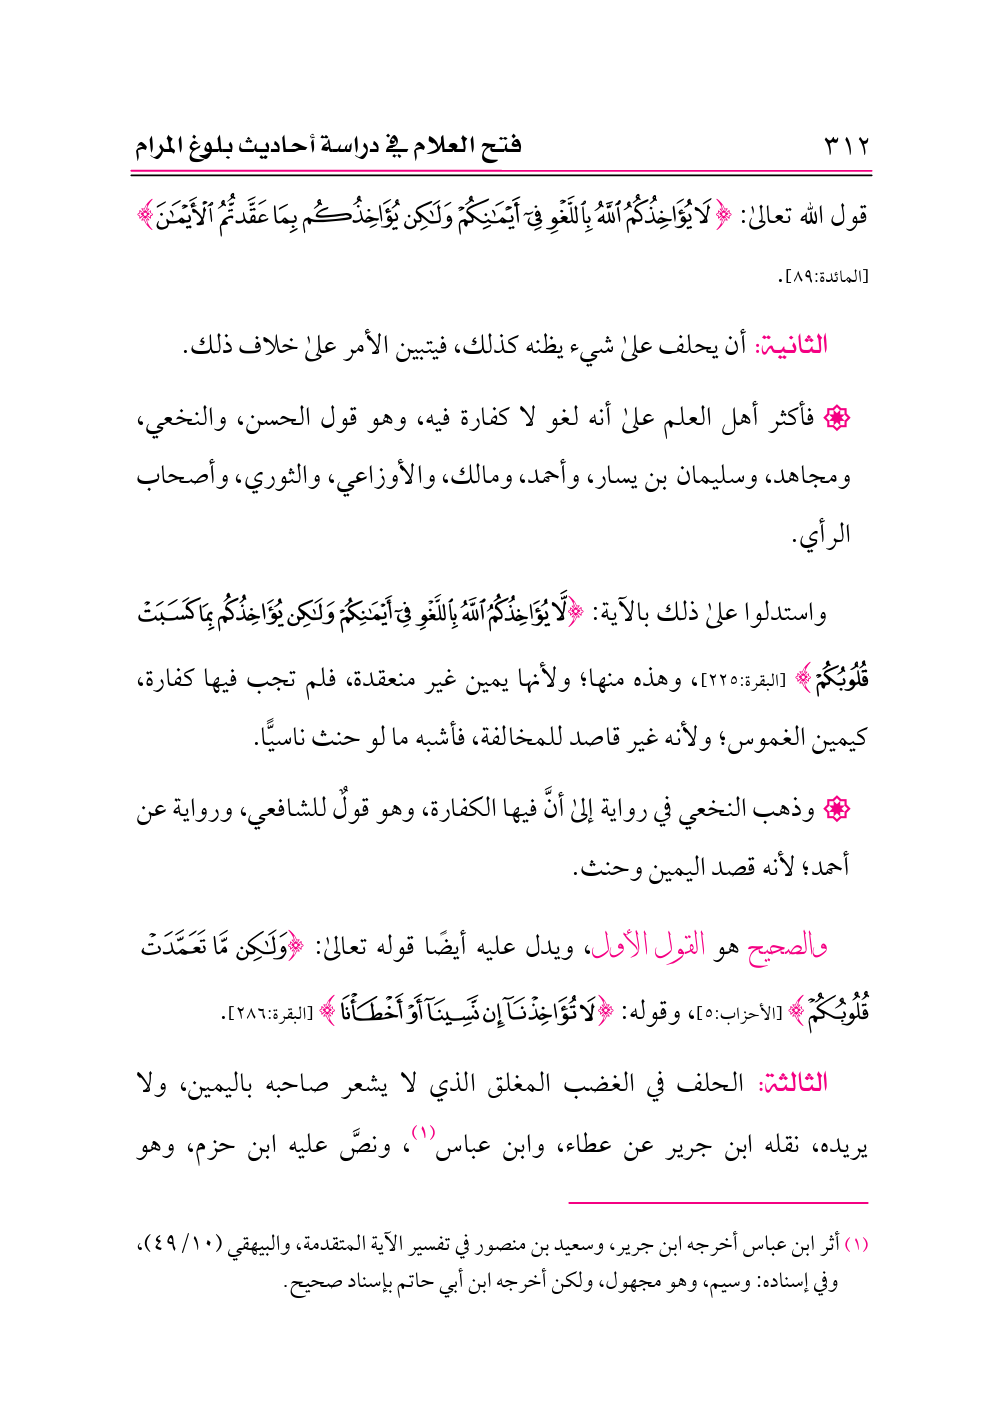 ٣١٢ فتح العلام في دراسة أحاديث بلوغ المرام
قول الله تعالىٰ: ﴿لَا يُؤَاخِذُكُمُ ٱللَّهُ بِٱللَّغْوِ فِىٓ أَيْمَٰنِكُمْ وَلَٰكِن يُؤَاخِذُكُم بِمَا عَقَّدتُّمُ ٱلْأَيْمَٰنَ﴾
[المائدة:٨٩].
الثانية: أن يحلف علىٰ شيء يظنه كذلك، فيتبين الأمر علىٰ خلاف ذلك.
فأكثر أهل العلم علىٰ أنه لغو لا كفارة فيه، وهو قول الحسن، والنخعي،
ومجاهد، وسليمان بن يسار، وأحمد، ومالك، والأوزاعي، والثوري، وأصحاب
الرأي.
واستدلوا علىٰ ذلك بالآية: ﴿لَّا يُؤَاخِذُكُمُ ٱللَّهُ بِٱللَّغْوِ فِىٓ أَيْمَٰنِكُمْ وَلَٰكِن يُؤَاخِذُكُم بِمَا كَسَبَتْ
قُلُوبُكُمْ﴾ [البقرة:٢٢٥]، وهذه منها؛ ولأنها يمين غير منعقدة، فلم تجب فيها كفارة،
كيمين الغموس؛ ولأنه غير قاصد للمخالفة، فأشبه ما لو حنث ناسيًّا.
وذهب النخعي في رواية إلىٰ أنَّ فيها الكفارة، وهو قولٌ للشافعي، ورواية عن
أحمد؛ لأنه قصد اليمين وحنث.
والصحيح هو القول الأول، ويدل عليه أيضًا قوله تعالىٰ: ﴿وَلَٰكِن مَّا تَعَمَّدَتْ
قُلُوبُكُمْ﴾ [الأحزاب:٥]، وقوله: ﴿لَا تُؤَاخِذْنَآ إِن نَّسِينَآ أَوْ أَخْطَأْنَا﴾ [البقرة:٢٨٦].
الثالثة: الحلف في الغضب المغلق الذي لا يشعر صاحبه باليمين، ولا
يريده، نقله ابن جرير عن عطاء، وابن عباس(١)، ونصَّ عليه ابن حزم، وهو
(١) أثر ابن عباس أخرجه ابن جرير، وسعيد بن منصور في تفسير الآية المتقدمة، والبيهقي (١٠/ ٤٩)،
وفي إسناده: وسيم، وهو مجهول، ولكن أخرجه ابن أبي حاتم بإسناد صحيح.